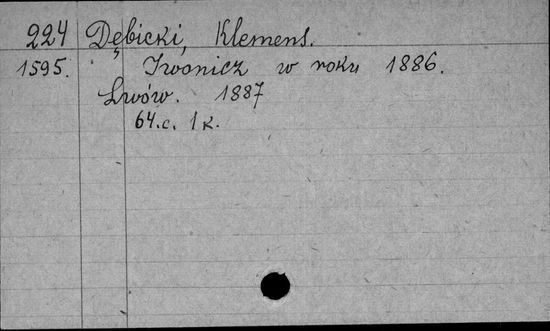 224 Dębicki, Klemens.
1595. Iwonicz w roku 1886.
Lwów. 1887
64.c. 1 k.